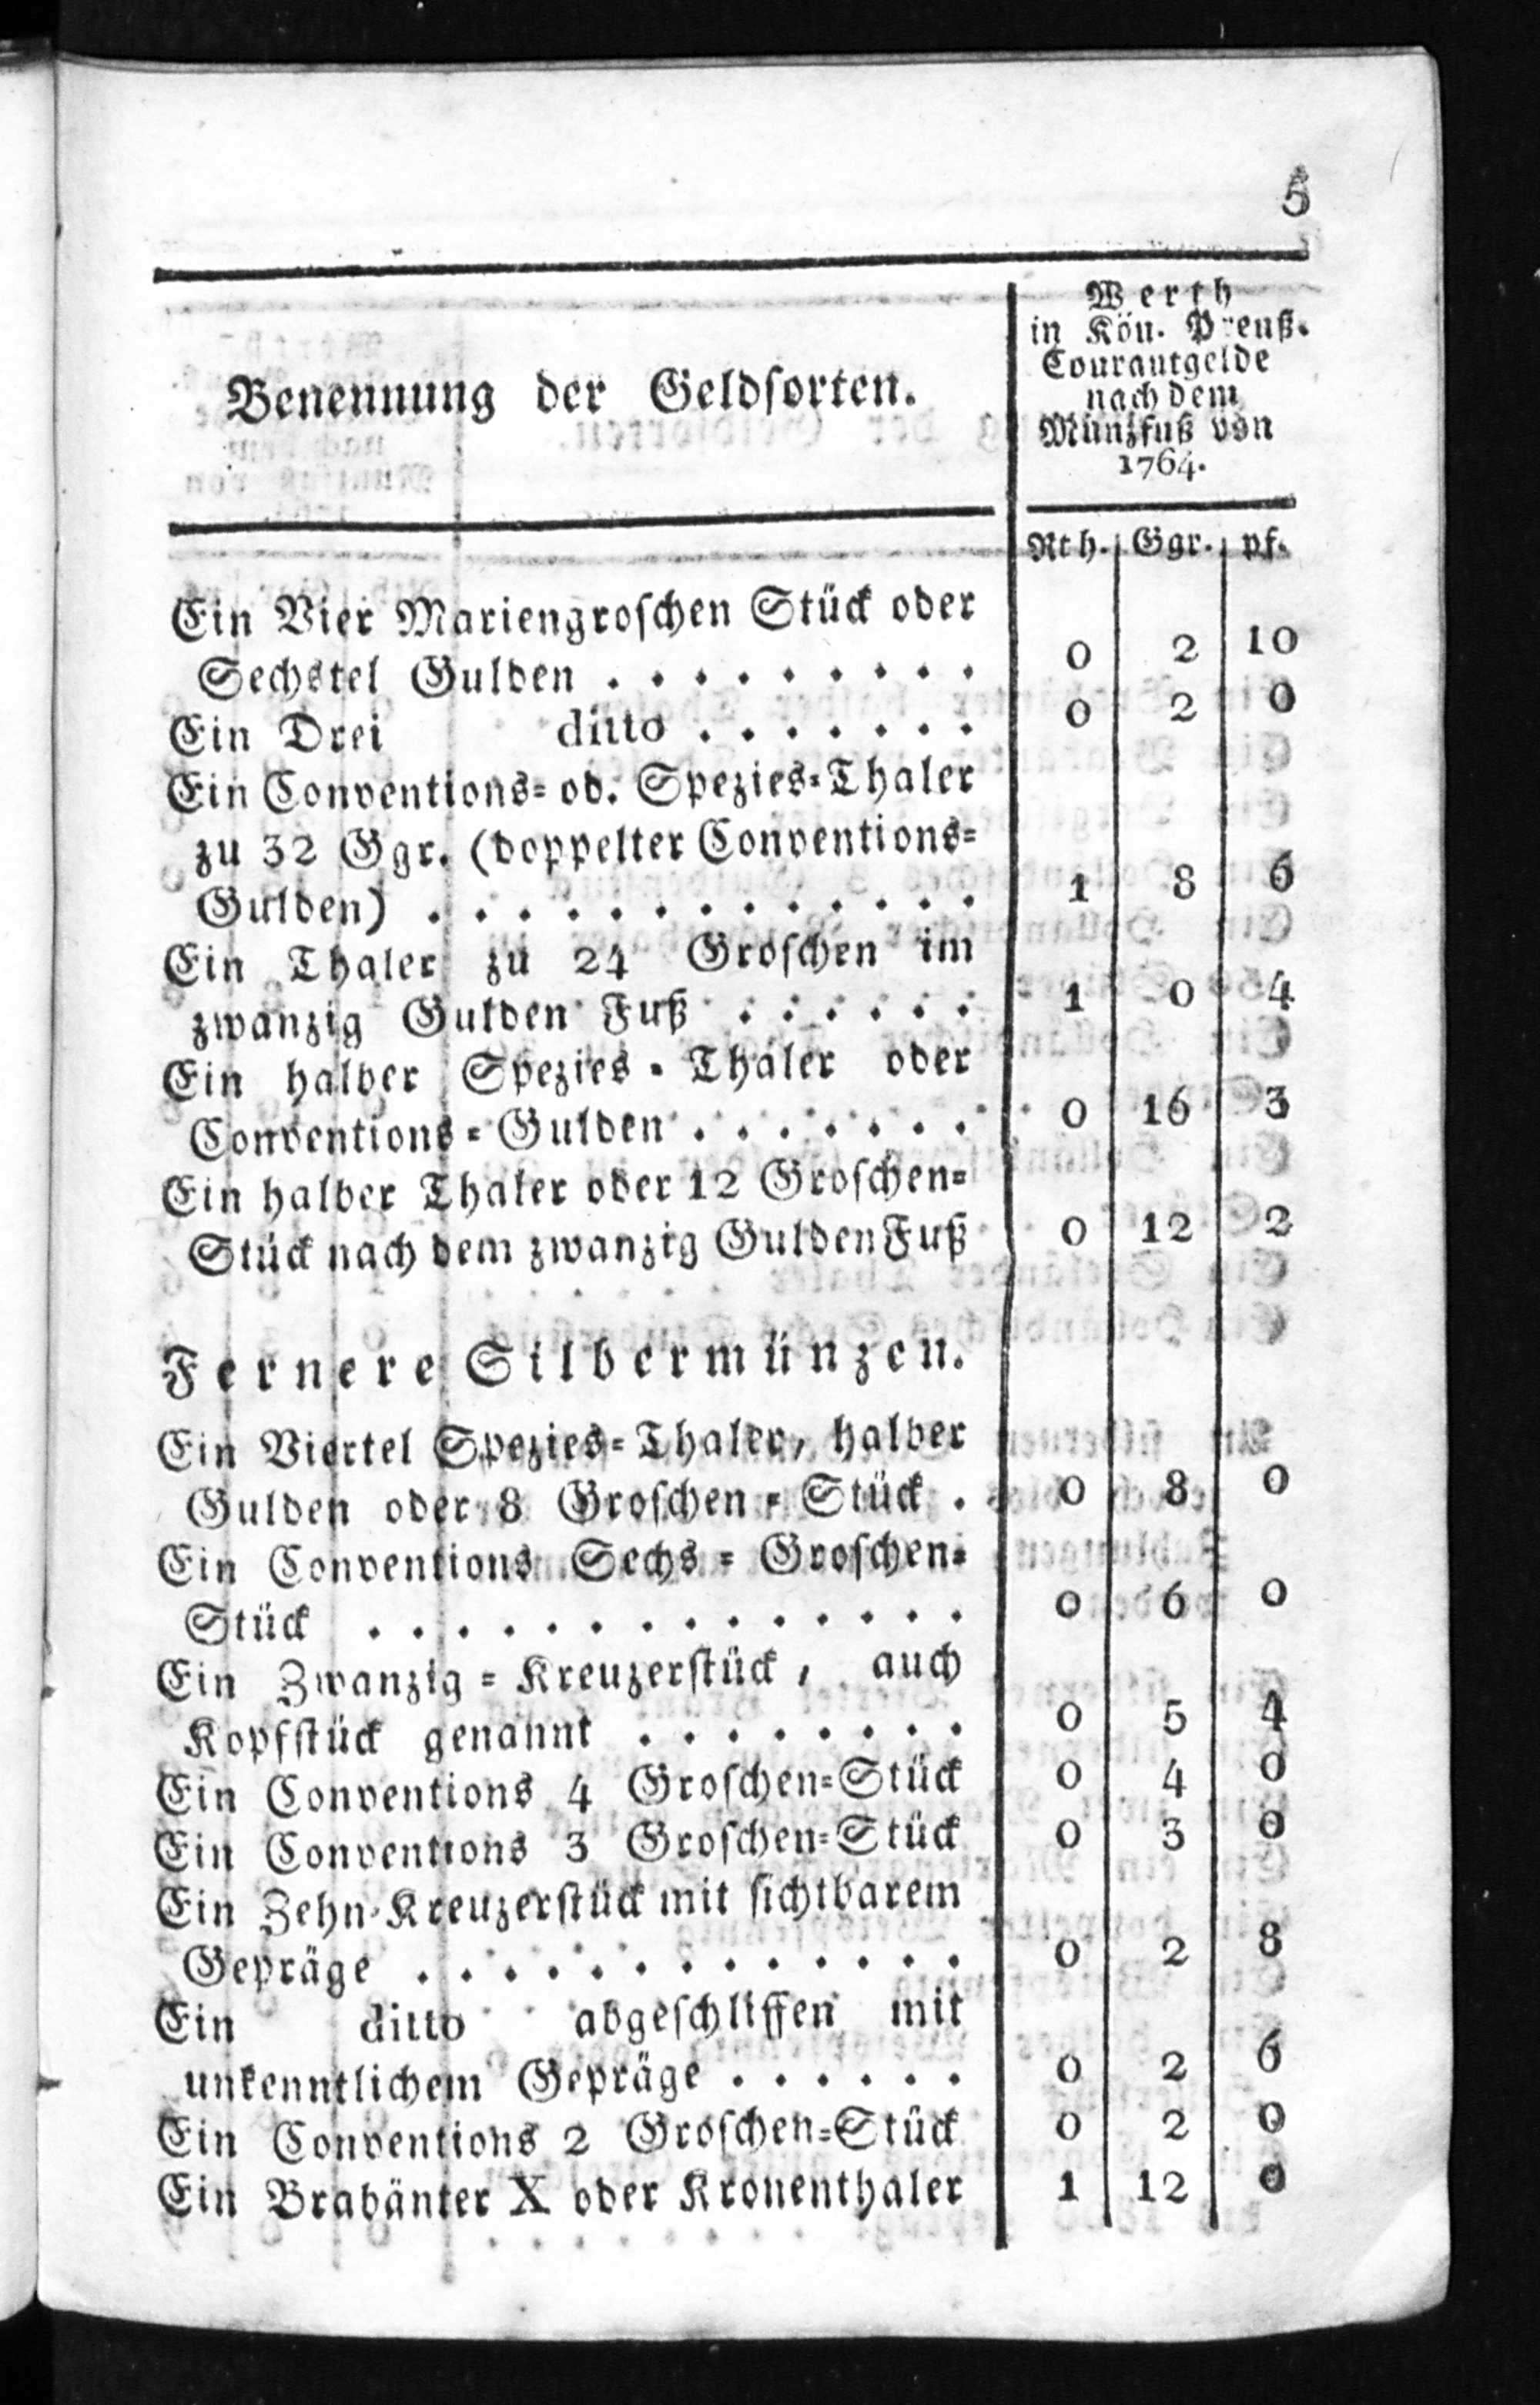 5
Benennung der Geldsorten.
Werth
in Kön. Preuß.
Courantgelde
nach dem
Münzfuß von
1764.
Rth. Ggr. pf.
Ein Vier Mariengroschen Stück oder
Sechstel Gulden . . . . . . . . . 0 2 10
Ein Drei ditto . . . . . . . 0 2 0
Ein Conventions- od. Spezies-Thaler
zu 32 Ggr. (doppelter Conventions-
Gulden) . . . . . . . . . . . . . 1 8 6
Ein Thaler zu 24 Groschen im
zwanzig Gulden Fuß . . . . . . 1 0 4
Ein halber Spezies-Thaler oder
Conventions-Gulden . . . . . . . 0 16 3
Ein halber Thaler oder 12 Groschen-
Stück nach dem zwanzig Gulden Fuß 0 12 2
Fernere Silbermünzen.
Ein Viertel Spezies-Thaler, halber
Gulden oder 8 Groschen-Stück . 0 8 0
Ein Conventions Sechs-Groschen-
Stück . . . . . . . . . . . . . . 0 6 0
Ein Zwanzig-Kreuzerstück, auch
Kopfstück genannt . . . . . . . . 0 5 4
Ein Conventions 4 Groschen-Stück 0 4 0
Ein Conventions 3 Groschen-Stück 0 3 0
Ein Zehn-Kreuzerstück mit sichtbarem
Gepräge . . . . . . . . . . . . . 0 2 8
Ein ditto abgeschliffen mit
unkenntlichem Gepräge . . . . . . 0 2 6
Ein Conventions 2 Groschen-Stück 0 2 0
Ein Brabänter X oder Kronenthaler 1 12 0